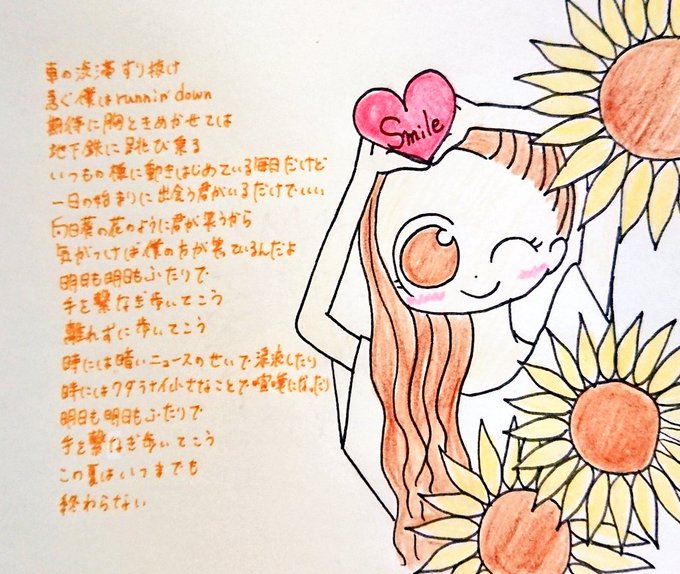 車の渋滞 すり抜け
急ぐ僕は runnin' down
期待に胸ときめかせては
地下鉄に 跳び乗る
いつもの様に動きはじめている毎日だけど
一日の始まりに出会う君がいるだけでいい
向日葵の花のように君が笑うから
気がつけば僕の方が笑ているんだよ
明日も明日もふたりで
手を繋なぎ歩いてこう
離れずに歩いてこう
時には暗いニュースのせいで涙流したり
時にはクダラナイ小さなことで喧嘩になったり
明日も明日もふたりで
手を繋なぎ歩いてこう
この夏はいつまでも
終わらない
Smile